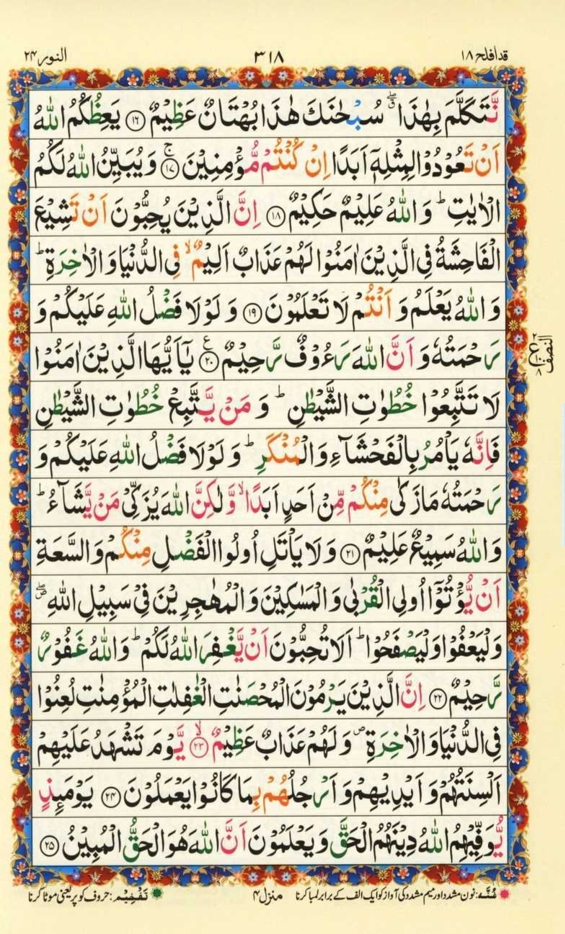 قدافلح ۱۸ ۳۱۸ النور ۲۴
نَّتَكَلَّمَ بِهٰذَا ۖۗ سُبْحٰنَكَ هٰذَا بُهْتَانٌ عَظِيْمٌ ﴿۱۶﴾ يَعِظُكُمُ اللّٰهُ
اَنْ تَعُوْدُوْا لِمِثْلِهٖۤ اَبَدًا اِنْ كُنْتُمْ مُّؤْمِنِيْنَ ۚ﴿۱۷﴾ وَ يُبَيِّنُ اللّٰهُ لَكُمُ
الْاٰيٰتِ ؕ وَ اللّٰهُ عَلِيْمٌ حَكِيْمٌ ﴿۱۸﴾ اِنَّ الَّذِيْنَ يُحِبُّوْنَ اَنْ تَشِيْعَ
الْفَاحِشَةُ فِى الَّذِيْنَ اٰمَنُوْا لَهُمْ عَذَابٌ اَلِيْمٌ ۙ فِى الدُّنْيَا وَ الْاٰخِرَةِ ؕ
وَ اللّٰهُ يَعْلَمُ وَ اَنْتُمْ لَا تَعْلَمُوْنَ ﴿۱۹﴾ وَ لَوْ لَا فَضْلُ اللّٰهِ عَلَيْكُمْ وَ
رَحْمَتُهٗ وَ اَنَّ اللّٰهَ رَءُوْفٌ رَّحِيْمٌ ﴿۲۰﴾ ع يٰۤاَيُّهَا الَّذِيْنَ اٰمَنُوْا
النصف
لَا تَتَّبِعُوْا خُطُوٰتِ الشَّيْطٰنِ ؕ وَ مَنْ يَّتَّبِعْ خُطُوٰتِ الشَّيْطٰنِ
فَاِنَّهٗ يَاْمُرُ بِالْفَحْشَآءِ وَ الْمُنْكَرِ ؕ وَ لَوْ لَا فَضْلُ اللّٰهِ عَلَيْكُمْ وَ
رَحْمَتُهٗ مَا زَكٰى مِنْكُمْ مِّنْ اَحَدٍ اَبَدًا ۙ وَّ لٰكِنَّ اللّٰهَ يُزَكِّىْ مَنْ يَّشَآءُ ؕ
وَ اللّٰهُ سَمِيْعٌ عَلِيْمٌ ﴿۲۱﴾ وَ لَا يَاْتَلِ اُولُوا الْفَضْلِ مِنْكُمْ وَ السَّعَةِ
اَنْ يُّؤْتُوْۤا اُولِى الْقُرْبٰى وَ الْمَسٰكِيْنَ وَ الْمُهٰجِرِيْنَ فِىْ سَبِيْلِ اللّٰهِ ۪ۖ
وَ لْيَعْفُوْا وَ لْيَصْفَحُوْا ؕ اَلَا تُحِبُّوْنَ اَنْ يَّغْفِرَ اللّٰهُ لَكُمْ ؕ وَ اللّٰهُ غَفُوْرٌ
رَّحِيْمٌ ﴿۲۲﴾ اِنَّ الَّذِيْنَ يَرْمُوْنَ الْمُحْصَنٰتِ الْغٰفِلٰتِ الْمُؤْمِنٰتِ لُعِنُوْا
فِى الدُّنْيَا وَ الْاٰخِرَةِ ۪ وَ لَهُمْ عَذَابٌ عَظِيْمٌ ۙ﴿۲۳﴾ يَّوْمَ تَشْهَدُ عَلَيْهِمْ
اَلْسِنَتُهُمْ وَ اَيْدِيْهِمْ وَ اَرْجُلُهُمْ بِمَا كَانُوْا يَعْمَلُوْنَ ﴿۲۴﴾ يَوْمَئِذٍ
يُّوَفِّيْهِمُ اللّٰهُ دِيْنَهُمُ الْحَقَّ وَ يَعْلَمُوْنَ اَنَّ اللّٰهَ هُوَ الْحَقُّ الْمُبِيْنُ ﴿۲۵﴾
غُنَّہ: نون مشدد اور میم مشدد کی آواز کو ایک الف کے برابر لمبا کرنا منزل ۴ تفخیم: حروف کو پُر یعنی موٹا کرنا